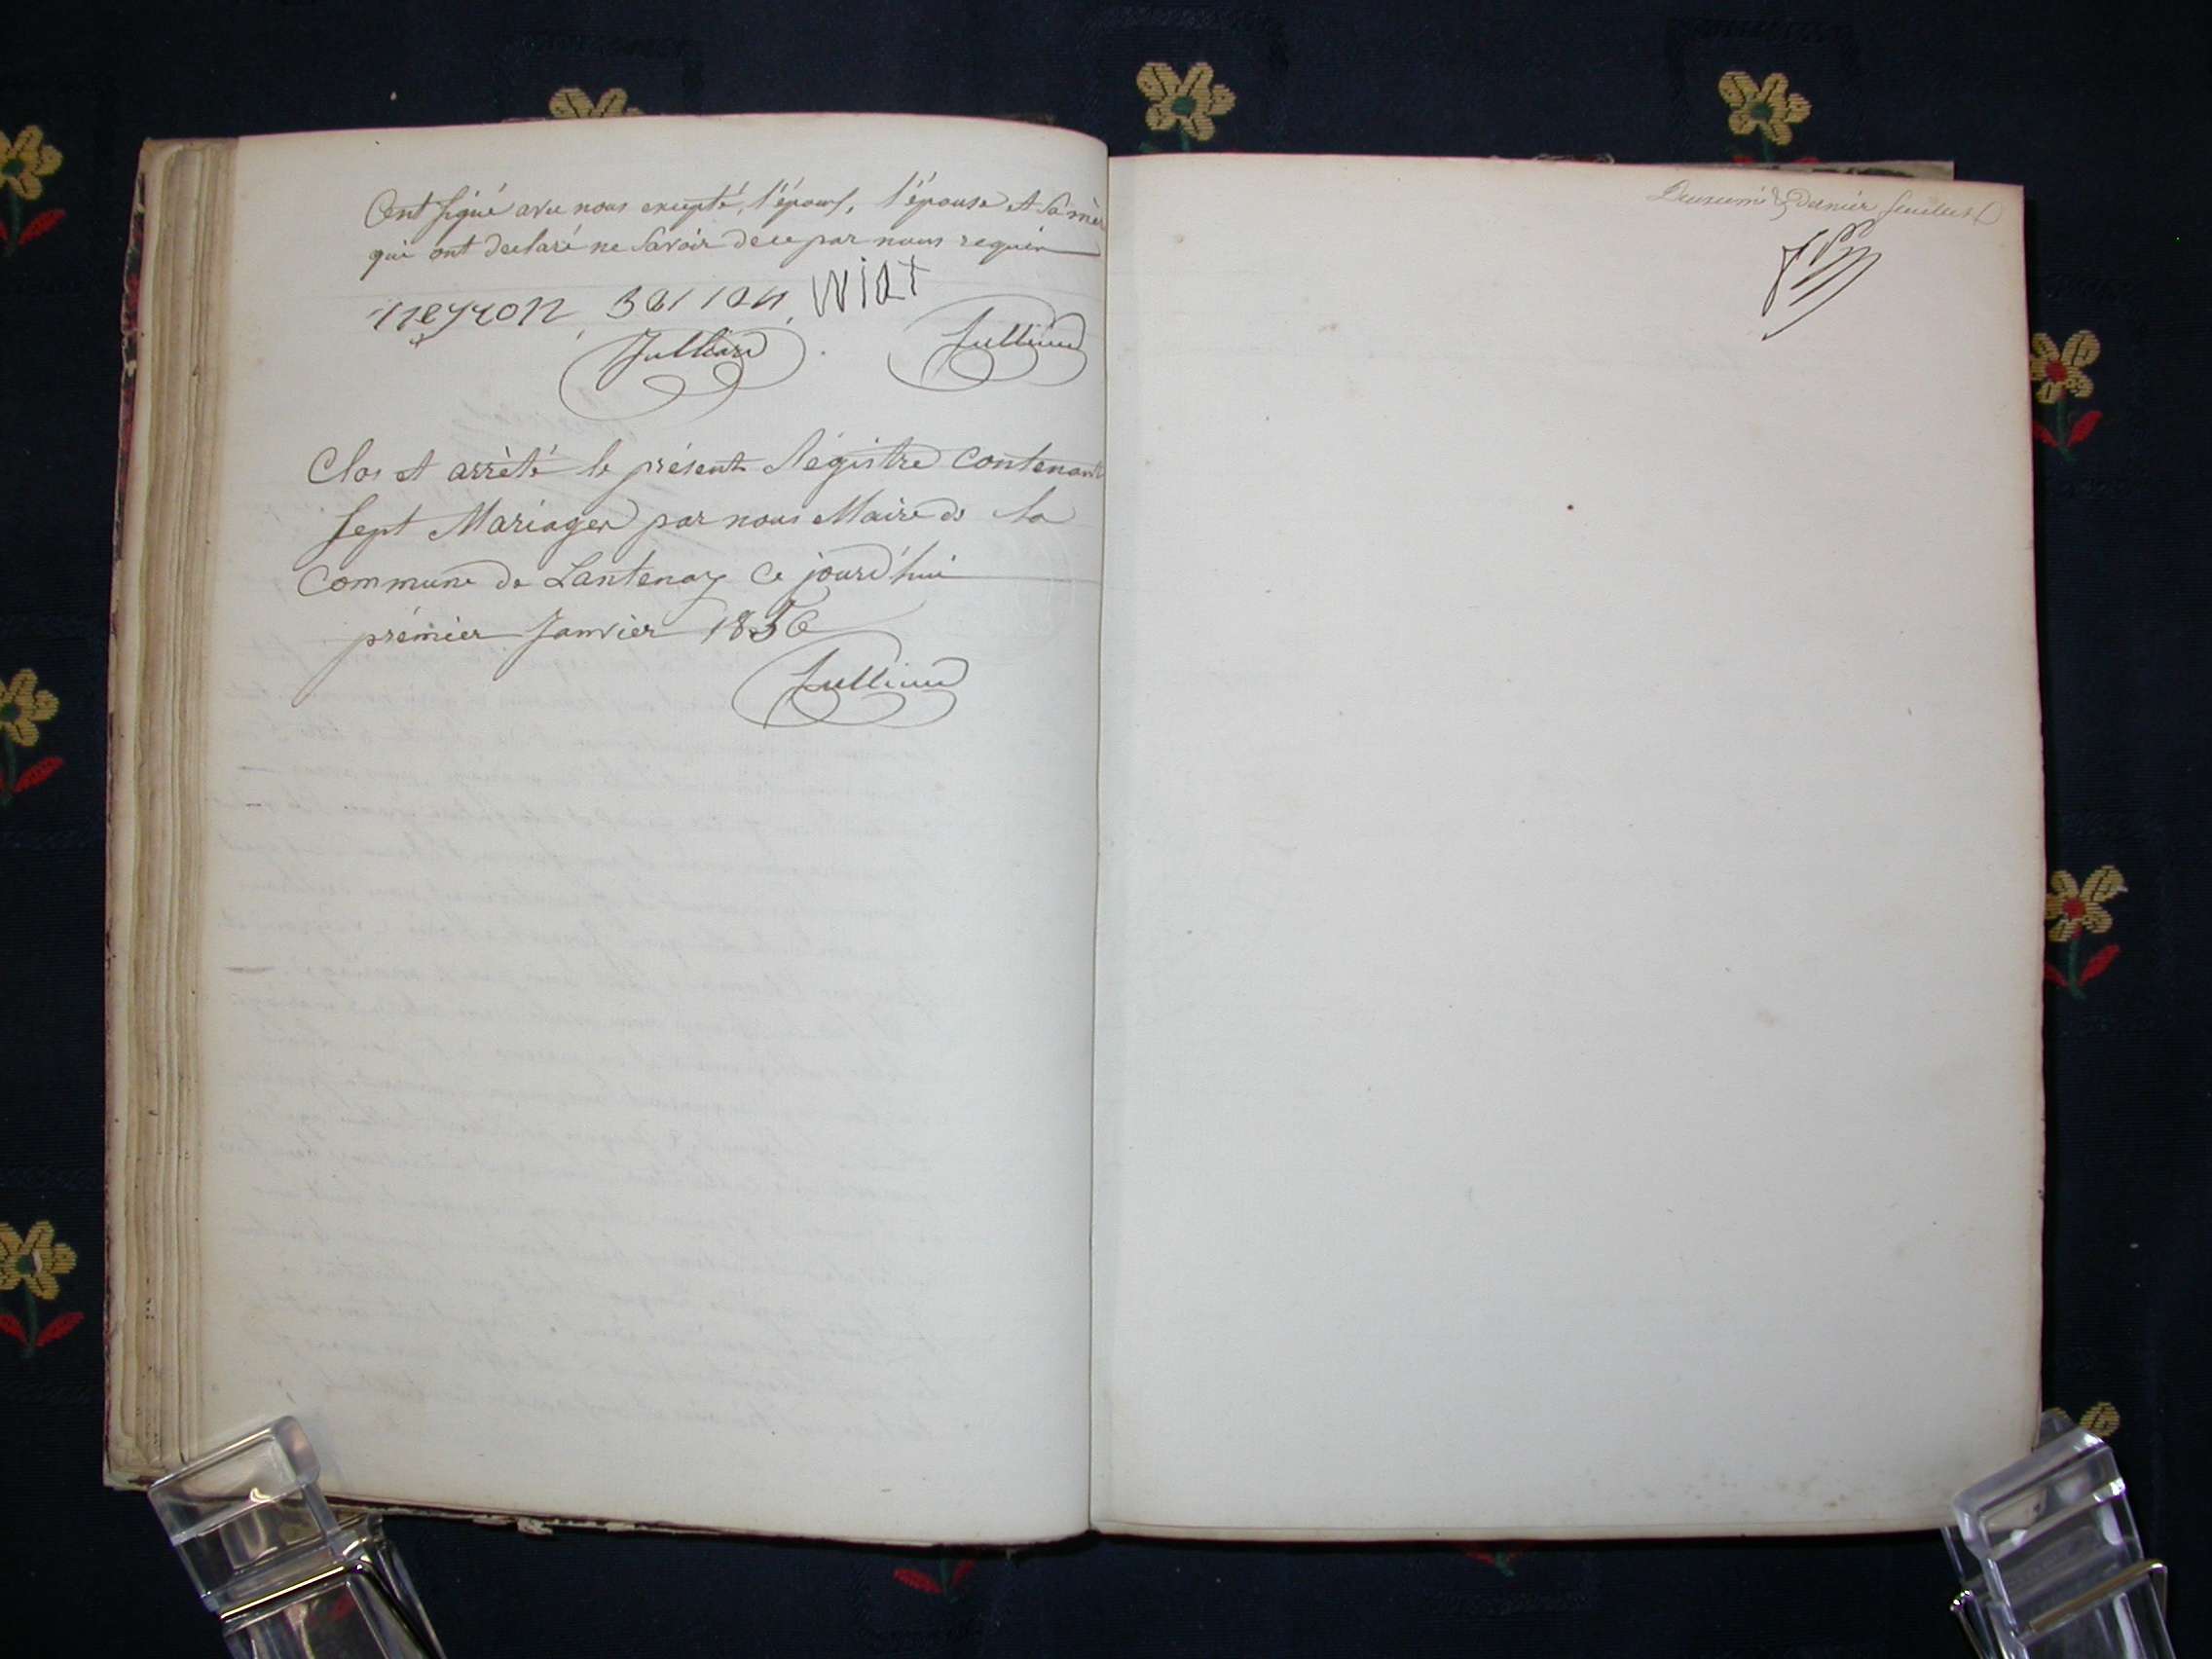 Ont signé avec nous excepté, l'époux, l'épouse et sa mère
qui ont declaré ne savoir de ce par nous requis
neyron wiat
Julliard Jullien
Clos et arrêté le présent Régistre contenant
sept Mariages par nous Maire de la
Commune de Lantenay Ce jourd'hui
prémier Janvier 1856
Jullien
dernier feuillet